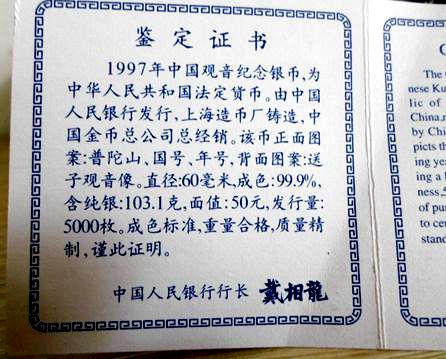 鉴定证书
1997年中国观音纪念银币,为
中华人民共和国法定货币。由中国
人民银行发行,上海造币厂铸造,中
国金币总公司总经销。该币正面图
案:普陀山、国号、年号,背面图案:送
子观音像。直径:60毫米,成色:99.9%,
含纯银:103.1克,面值:50元,发行量:
5000枚。成色标准,重量合格,质量精
制,谨此证明。
中国人民银行行长 戴相龍
The
nese Ku
lic of
China,
by Chi
picts th
ing yea
ing a
ness,
of pu
to cer
stand